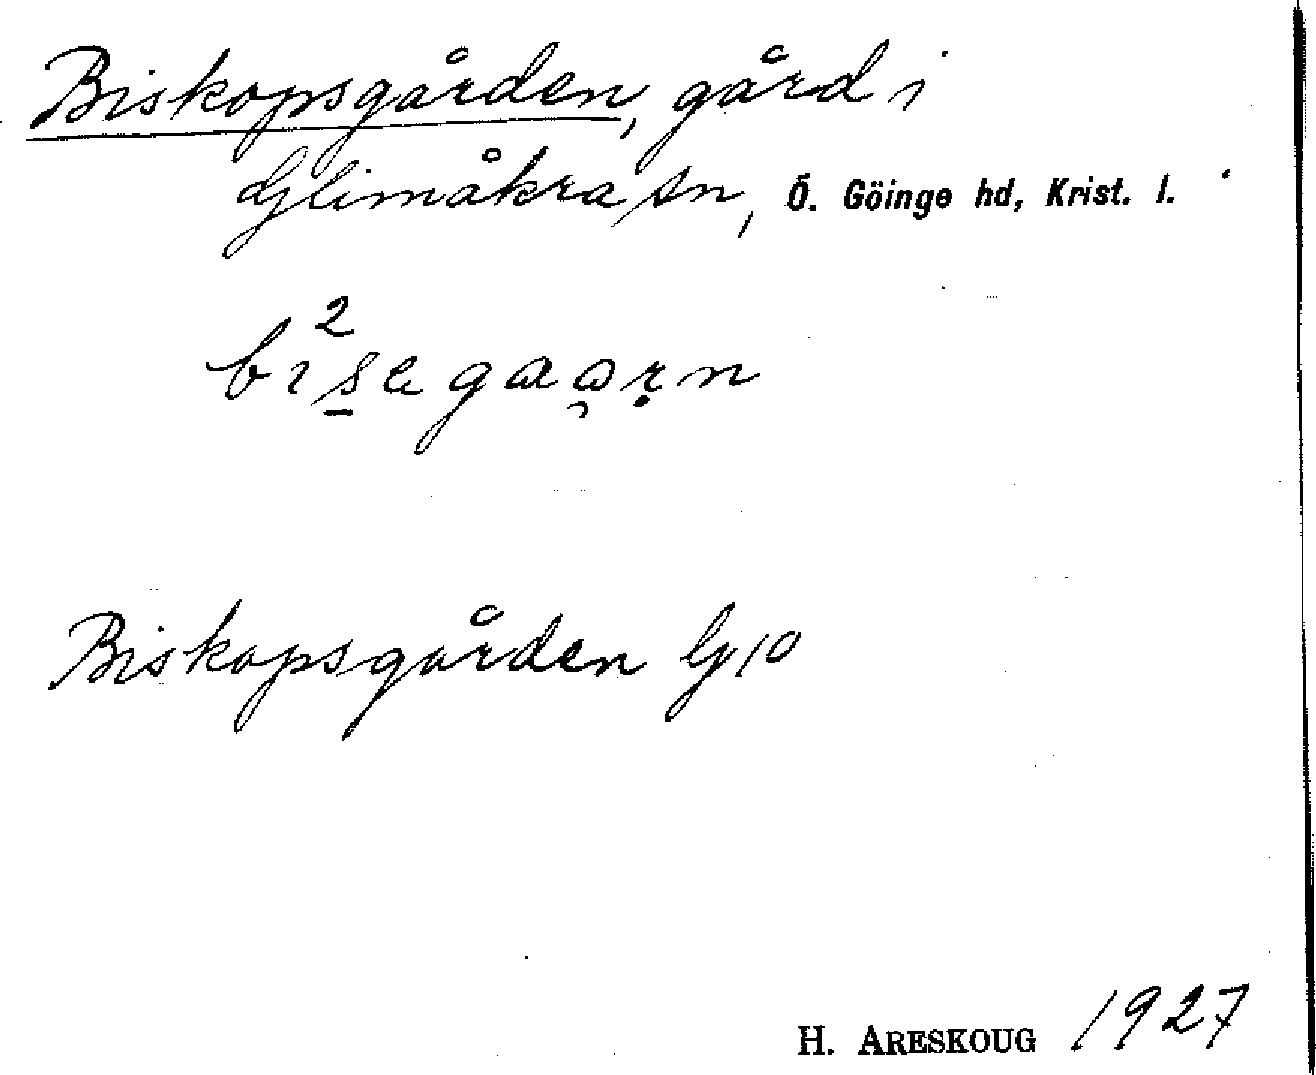 Biskopsgården, gård i
Glimåkra sn, Ö. Göinge hd, Krist. l.
2
bisegaarn
Biskopsgården Gj10
H. ARESKOUG 1927